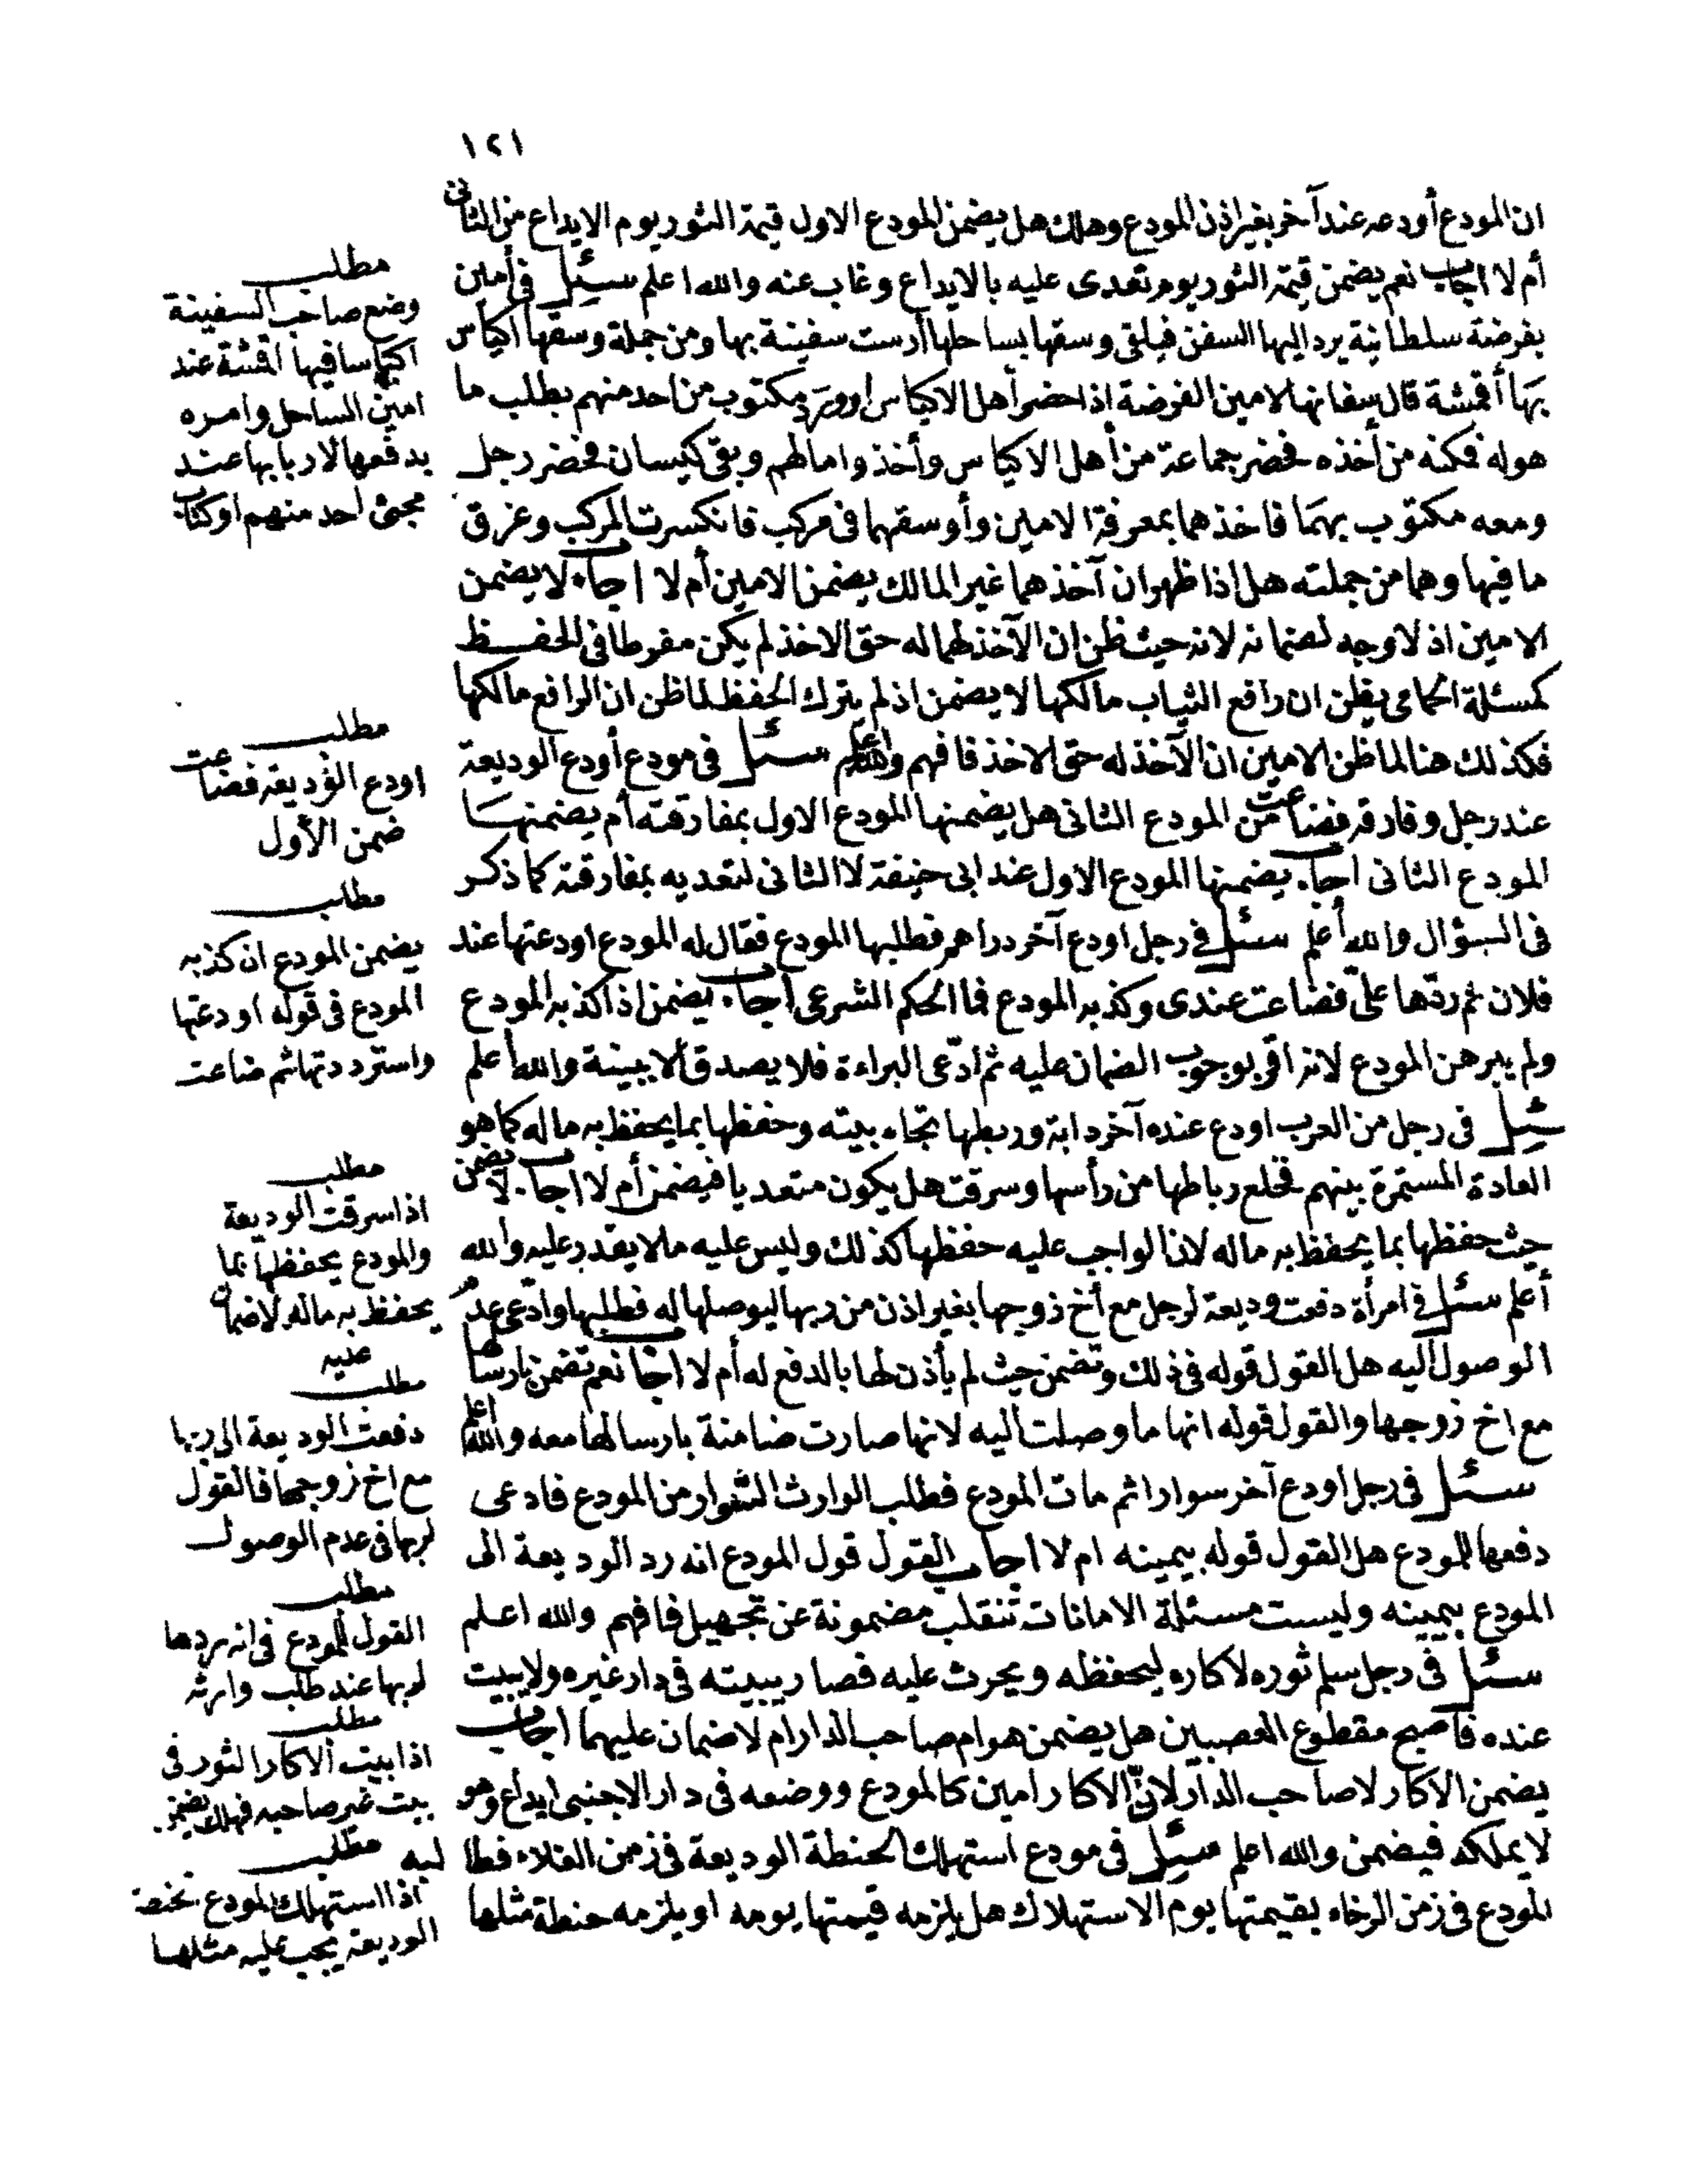 ١٢١
ان المودع أودعه عند آخر بغير اذن المودع وهلك هل يضمن المودع الاول قيمة الثور يوم الايداع من الثانى
أم لا اجاب نعم يضمن قيمة الثور يوم تعدى عليه بالايداع وغاب عنه والله اعلم سئل فى أمين
بفرضة سلطانية يرد اليها السفن فيلقى وسقها بساحلها أرست سفينة بها ومن جملة وسقها اكياس
بها أقمشة قال سفانها لامين الفرضة اذا حضر أهل الاكياس او ورد مكتوب من احد منهم بطلب ما
هو له فمكنه من أخذه فحضر جماعة من أهل الاكياس وأخذوا مالهم وبقى كيسان فحضر رجل
ومعه مكتوب بهما فاخذهما بمعرفة الامين وأوسقهما فى مركب فانكسرت المركب وغرق
ما فيها وهما من جملته هل اذا ظهر ان آخذهما غير المالك يضمن الامين أم لا اجاب لا يضمن
الامين اذ لا وجه لضمانه لانه حيث ظن ان الآخذ لهما له حق الاخذ لم يكن مفرطا فى الحفظ
كمسئلة الحمامى يظن ان رافع الثياب مالكها لا يضمن اذ لم يترك الحفظ لما ظن ان الرافع مالكها
فكذلك هنا لما ظن الامين ان الآخذ له حق الاخذ فافهم والله اعلم سئل فى مودع أودع الوديعة
عند رجل وفارقه فضاعت من المودع الثانى هل يضمنها المودع الاول بمفارقته أم يضمنها
المودع الثانى اجاب يضمنها المودع الاول عند ابى حنيفة لا الثانى لتعديه بمفارقته كما ذكر
فى السؤال والله أعلم سئل فى رجل اودع آخر دراهم فطلبها المودع فقال له المودع اودعتها عند
فلان ثم ردها علىّ فضاعت عندى وكذبه المودع فما الحكم الشرعى اجاب يضمن اذا كذبه المودع
ولم يبرهن المودع لانه اقر بوجوب الضمان عليه ثم ادّعى البراءة فلا يصدق ألا ببينة والله أعلم
سئل فى رجل من العرب اودع عنده آخر دابة وربطها تجاه بيته وحفظها بما يحفظ به ماله كما هو
العادة المستمرة بينهم فخلع رباطها من رأسها وسرقت هل يكون متعديا فيضمن أم لا اجاب لا يضمن
حيث حفظها بما يحفظ به ماله لان الواجب عليه حفظها كذلك وليس عليه ما لا يقدر عليه والله
أعلم سئل فى امرأة دفعت وديعة لرجل مع أخ زوجها بغير اذن من ربها ليوصلها له فطلبها وادّعى عدم
الوصول اليه هل القول قوله فى ذلك وتضمن حيث لم يأذن لها بالدفع له أم لا اجاب نعم تضمن بارسالها
مع اخ زوجها والقول قوله انها ما وصلت أليه لانها صارت ضامنة بارسالها معه والله اعلم
سئل فى رجل اودع آخر سوارا ثم مات المودع فطلب الوارث السوار من المودع فادعى
دفعها للمودع هل القول قوله بيمينه ام لا اجاب القول قول المودع انه رد الوديعة الى
المودع بيمينه وليست مسئلة الامانات تنقلب مضمونة عن تجهيل فافهم والله اعلم
سئل فى رجل سلم ثوره لاكاره ليحفظه ويحرث عليه فصار يبيته فى دار غيره ولا يبيت
عنده فاصبح مقطوع العصبين هل يضمن هو ام صاحب الدار ام لا ضمان عليهما اجاب
يضمن الاكار لا صاحب الدار لانّ الاكار امين كالمودع ووضعه فى دار الاجنبى ايداع وهو
لا يملكه فيضمن والله اعلم سئل فى مودع استهلك الحنطة الوديعة فى زمن الغلاء فطالبه
المودع فى زمن الرخاء بقيمتها يوم الاستهلاك هل يلزمه قيمتها يومه او يلزمه حنطة مثلها
مطلب
وضع صاحب السفينة
اكياسا فيها اقمشة عند
امين الساحل وامره
بدفعها لاربابها عند
مجئ احد منهم او كتاب
مطلب
اودع الوديعة فضاعت
ضمن الأول
مطلب
يضمن المودع ان كذبه
المودع فى قوله اودعتها
واسترددتها ثم ضاعت
مطلب
اذا سرقت الوديعة
والمودع يحفظها بما
يحفظ به ماله لا ضمان
عليه
مطلب
دفعت الوديعة الى ربها
مع اخ زوجها فالقول
لربها فى عدم الوصول
مطلب
القول للمودع فى انه ردها
لربها عند طلب وارثه
مطلب
اذا بيت ألاكار الثور فى
بيت غير صاحبه فهلك يضمن
مطلب
اذا استهلك المودع الحنطة
الوديعة يجب عليه مثلها